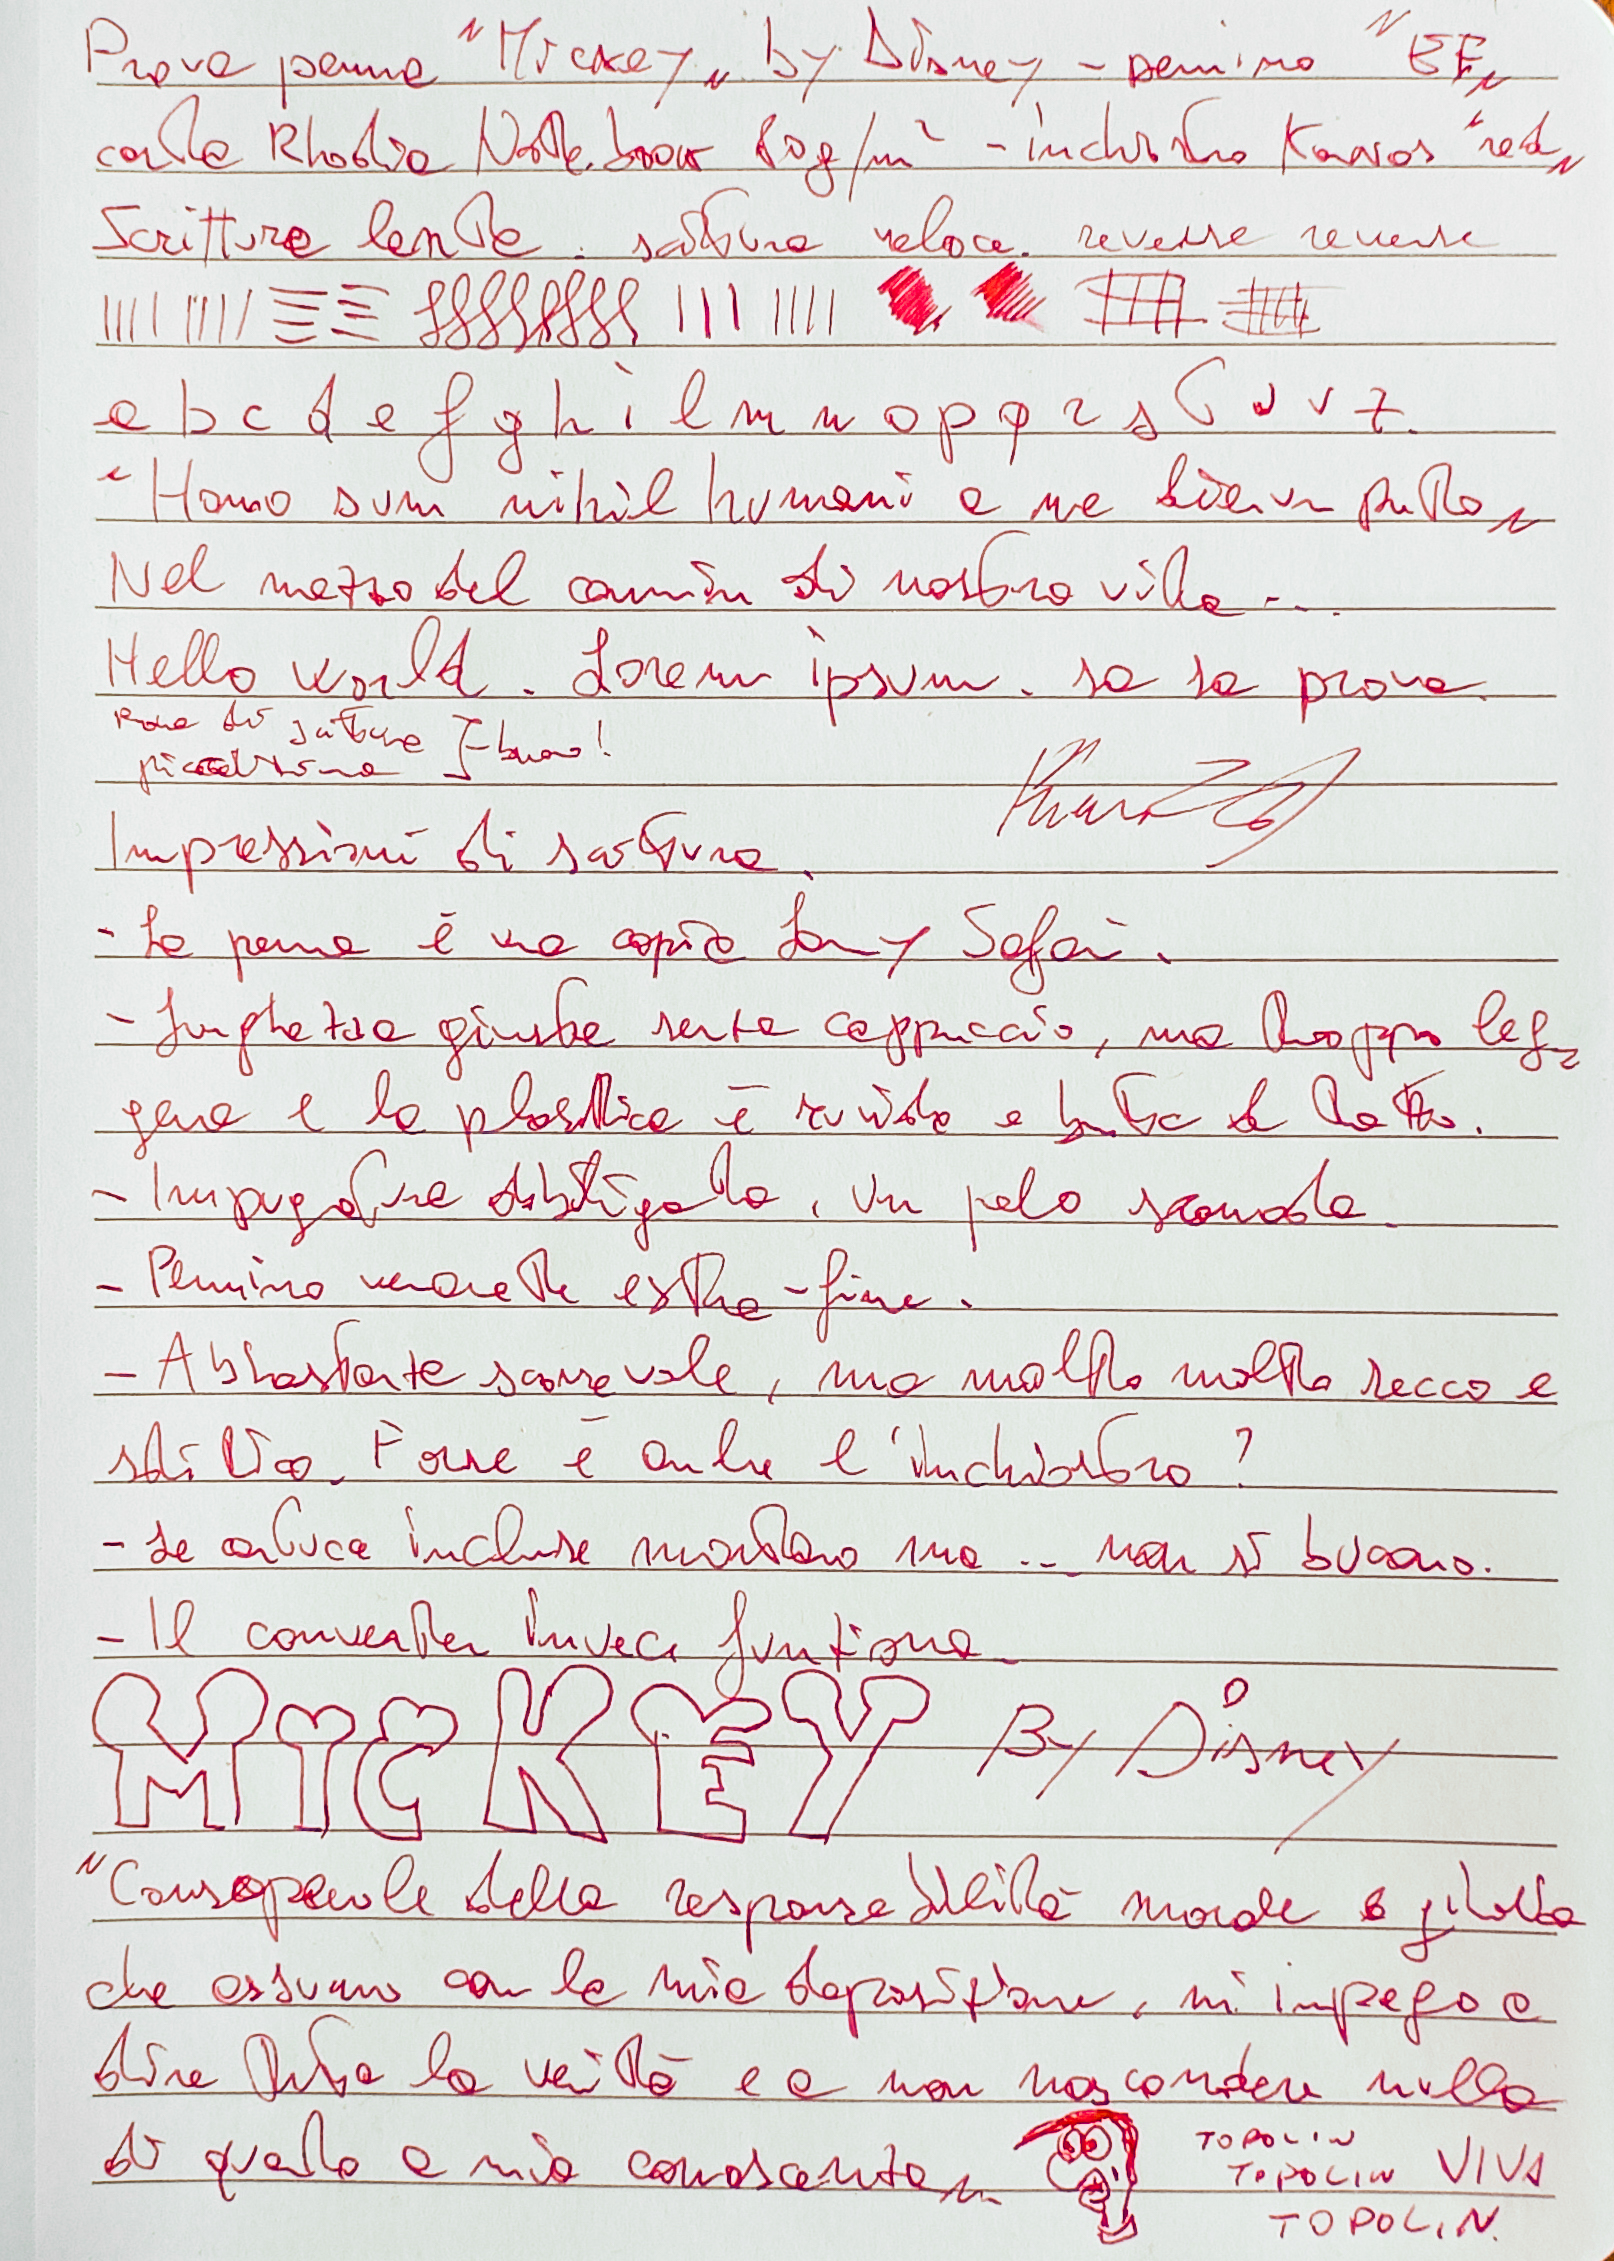 Prova penna "Mickey" by Disney - pennino "EF"
carta Rhodia Notebook 80g/m² - inchiostro Kaweco "red"
Scrittura lenta. scrittura veloce. reverse reverse
a b c d e f g h i l m n o p q r s t u v z.
"Homo sum nihil humani a me alienum puto"
Nel mezzo del cammin di nostra vita ...
Hello world. Lorem ipsum. sa sa prova.
Prova di scrittura
piccolissima
} - buono!
Impressioni di scrittura.
- La penna è una copia Lamy Safari.
- Lunghezza giusta senza cappuccio, ma troppo leg-
gera e la plastica è ruvida e brutta al tatto.
- Impugnatura obbligata, un pelo scomoda.
- Pennino veramente extra-fine.
- Abbastanza scorrevole, ma molto molto secco e
stitico. Forse è anche l'inchiostro?
- Le cartucce incluse montano ma ... non si bucano.
- Il converter invece funziona.
MICKEY By Disney
"Consapevole della responsabilità morale e giuridica
che assumo con la mia deposizione, mi impegno a
dire tutta la verità e a non nascondere nulla
di quanto a mia conoscenza"
TOPOLIN
TOPOLIN VIVA
TOPOLIN.